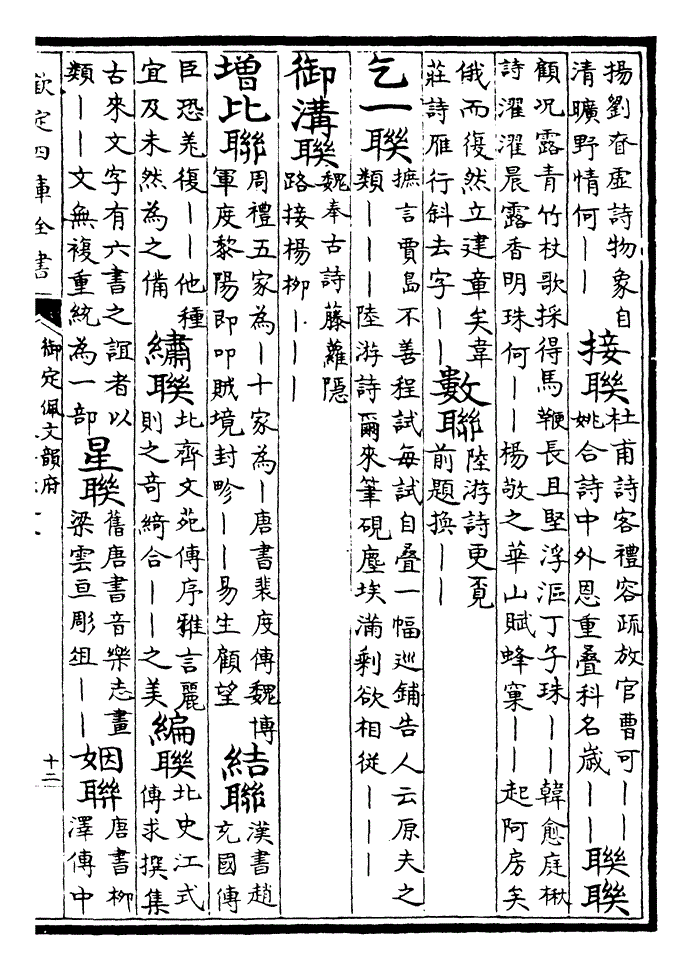 揚劉眘虛詩物象自
清曠野情何｜｜
接聯
杜甫詩客禮容疏放官曹可｜｜
姚合詩中外恩重叠科名歲｜｜
聯聯
顧況露青竹杖歌採得馬鞭長且堅浮漚丁子珠｜｜韓愈庭楸
詩濯濯晨露香明珠何｜｜楊敬之華山賦蜂窠｜｜起阿房矣
俄而復然立建章矣韋
莊詩雁行斜去字｜｜
數聯
陸游詩更覔
前題換｜｜
乞一聯
摭言賈島不善程試每試自叠一幅巡鋪告人云原夫之
類｜｜｜陸游詩爾來筆硯塵埃滿剩欲相從｜｜｜
御溝聯
魏奉古詩藤蘿隱
路接楊柳｜｜｜
增比聯
周禮五家為｜十家為｜唐書裴度傳魏博
軍度黎陽即叩賊境封畛｜｜易生顧望
結聯
漢書趙
充國傳
臣恐羌復｜｜他種
宜及未然為之備
繡聯
北齊文苑傳序雅言麗
則之奇綺合｜｜之美
編聯
北史江式
傳求撰集
古來文字有六書之誼者以
類｜｜文無複重統為一部
星聯
舊唐書音樂志畫
梁雲亘彫俎｜｜
姻聯
唐書柳
澤傳中
欽定四庫全書
御定佩文韻府
十二